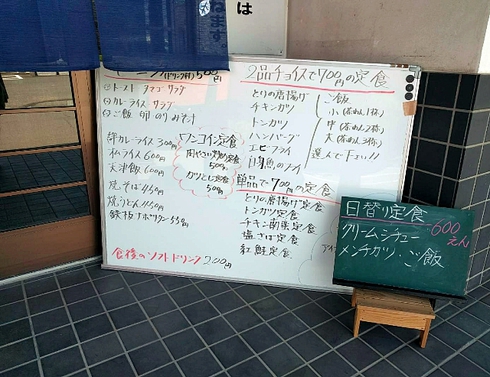 は
ねます。
モーニング(ドリンク付) 500円
トースト タマゴ サラダ
カレーライス サラダ
ご飯 卵 のり みそ汁
カレーライス 300円
ハムライス 600円
天津飯 600円
焼そば
焼うどん
鉄板ナポリタン 550円
ワンコイン定食
500円
カツとじ定食
500円
食後のソフトドリンク 200円
2品チョイスで700円の定食
とりの唐揚げ
チキンカツ
トンカツ
ハンバーグ
エビフライ
白身魚のフライ
ご飯
小(茶わん1杯)
中(茶わん2杯)
大(茶わん3杯)
選んで下さい!!
単品で700円の定食
とりの唐揚げ定食
トンカツ定食
チキン南蛮定食
塩さば定食
紅鮭定食
日替り定食
600えん
クリームシチュー
メンチカツ・ご飯